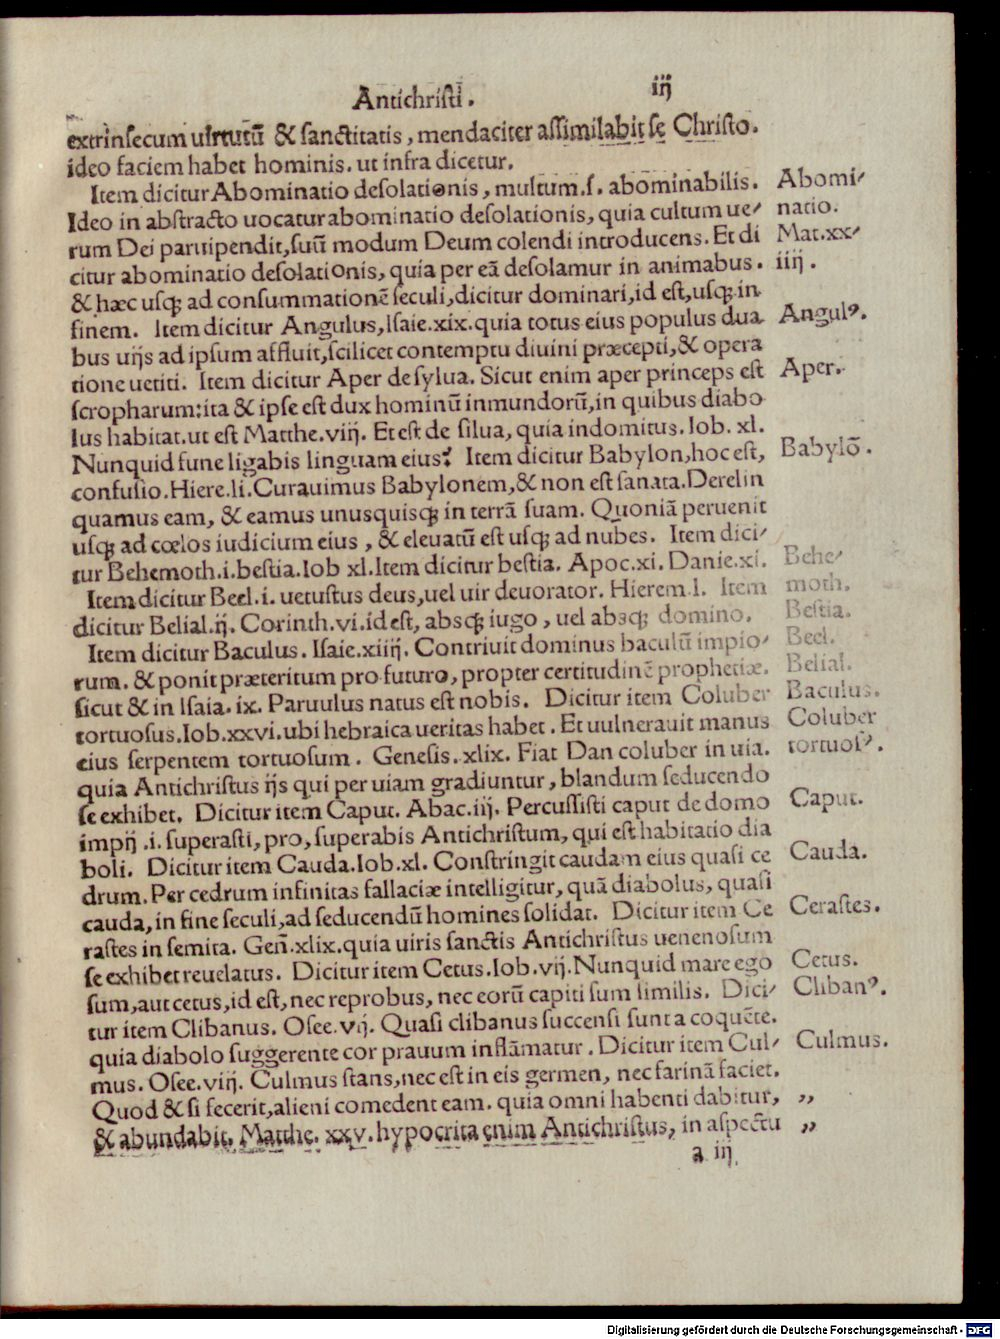 Antichristi. iij
extrinsecum uirtutū & sanctitatis, mendaciter assimilabit se Christo.
ideo faciem habet hominis. ut infra dicetur.
Item dicitur Abominatio desolationis, multum.ſ. abominabilis. Abomi⸗
Ideo in abstracto uocatur abominatio desolationis, quia cultum ue⸗ natio.
rum Dei paruipendit, suū modum Deum colendi introducens. Et di Mat.xx⸗
citur abominatio desolationis, quia per eā desolamur in animabus. iiij.
& hæc usq; ad consummationē seculi, dicitur dominari, id est, usq; in
finem. Item dicitur Angulus, Isaie.xix. quia totus eius populus dua Angulꝰ.
bus uijs ad ipsum affluit, scilicet contemptu diuini præcepti, & opera
tione uetiti. Item dicitur Aper de sylua. Sicut enim aper princeps est Aper.
scropharum: ita & ipse est dux hominū inmundorū, in quibus diabo
lus habitat. ut est Matthe.viij. Et est de silua, quia indomitus. Iob. xl.
Nunquid fune ligabis linguam eius? Item dicitur Babylon, hoc est, Babylō.
confusio. Hiere.li. Curauimus Babylonem, & non est sanata. Derelin
quamus eam, & eamus unusquisq; in terrā suam. Quoniā peruenit
usq; ad cœlos iudicium eius, & eleuatū est usq; ad nubes. Item dici⸗
tur Behemoth.i.bestia. Iob xl. Item dicitur bestia. Apoc.xi. Danie.xi. Behe⸗
Item dicitur Beel.i. uetustus deus, uel uir deuorator. Hierem.l. Item moth.
dicitur Belial.ij. Corinth.vi. id est, absq; iugo, uel absq; domino. Bestia.
Item dicitur Baculus. Isaie.xiiij. Contriuit dominus baculū impio⸗ Beel.
rum. & ponit præteritum pro futuro, propter certitudinē prophetiæ. Belial.
sicut & in Isaia. ix. Paruulus natus est nobis. Dicitur item Coluber Baculus.
tortuosus. Iob.xxvi. ubi hebraica ueritas habet. Et uulnerauit manus Coluber
eius serpentem tortuosum. Genesis.xlix. Fiat Dan coluber in uia. tortuosꝰ.
quia Antichristus ijs qui per uiam gradiuntur, blandum seducendo
se exhibet. Dicitur item Caput. Abac.iij. Percussisti caput de domo Caput.
impij .i. superasti, pro, superabis Antichristum, qui est habitatio dia
boli. Dicitur item Cauda. Iob.xl. Constringit caudam eius quasi ce Cauda.
drum. Per cedrum infinitas fallaciæ intelligitur, quā diabolus, quasi
cauda, in fine seculi, ad seducendū homines solidat. Dicitur item Ce Cerastes.
rastes in semita. Geñ.xlix. quia uiris sanctis Antichristus uenenosum
se exhibet reuelatus. Dicitur item Cetus. Iob.vij. Nunquid mare ego Cetus.
sum, aut cetus, id est, nec reprobus, nec eorū capiti sum similis. Dici⸗ Clibanꝰ.
tur item Clibanus. Osee.vij. Quasi clibanus succensi sunt a coquēte.
quia diabolo suggerente cor prauum inflāmatur. Dicitur item Cul⸗ Culmus.
mus. Osee.viij. Culmus stans, nec est in eis germen, nec farinā faciet.
Quod & si fecerit, alieni comedent eam. quia omni habenti dabitur, „
& abundabit. Matthe. xxv. hypocrita enim Antichristus, in aspectu „
a iij
Digitalisierung gefördert durch die Deutsche Forschungsgemeinschaft - DFG